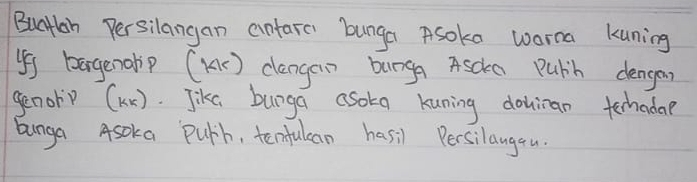 Buatlah Persilangan antara bunga Asoka warna kuning
yg bergenotip (KK) dengan bunga Asoka Putih dengan
genotip (kk). Jika bunga asoka kuning dominan terhadap
bunga Asoka Putih, tentukan hasil Persilangan.